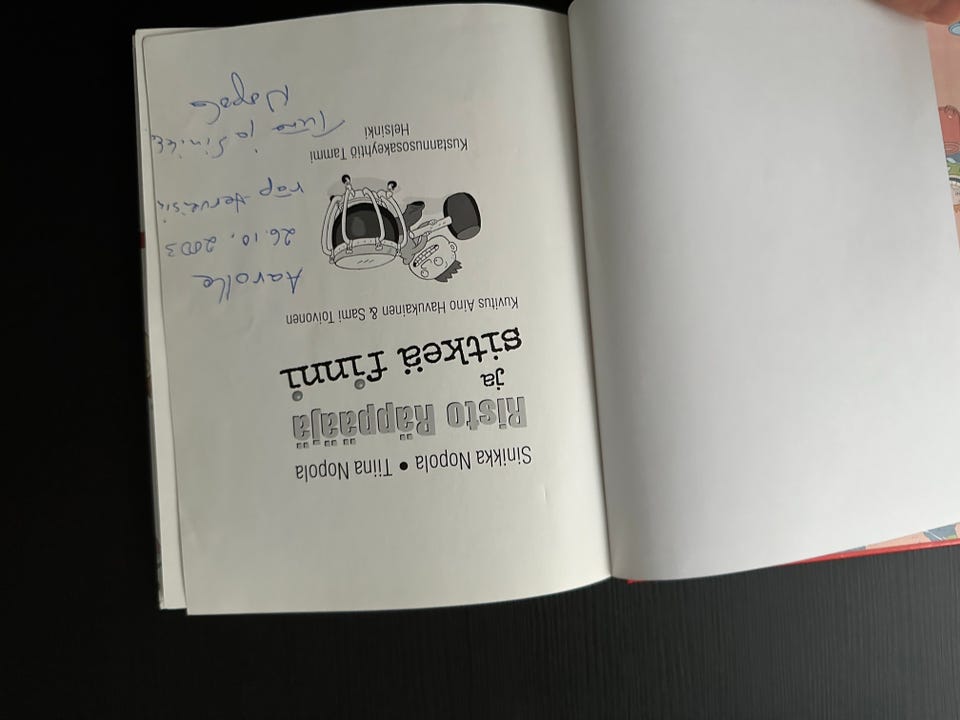 Sinikka Nopola • Tiina Nopola
Risto Räppääjä
ja
sitkeä finni
Kuvitus Aino Havukainen & Sami Toivonen
Kustannusosakeyhtiö Tammi
Helsinki
Aarolle
26.10.2003
räp terveisin
Tiina ja Sinikka
Nopola